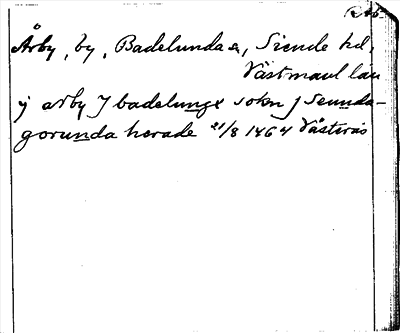 Åby, by, Badelunda sn, Siende hd,
Västmanl län
ÿ arby J badelunge sokn j Seunda-
gorunda herade 21/8 1464 Västerås